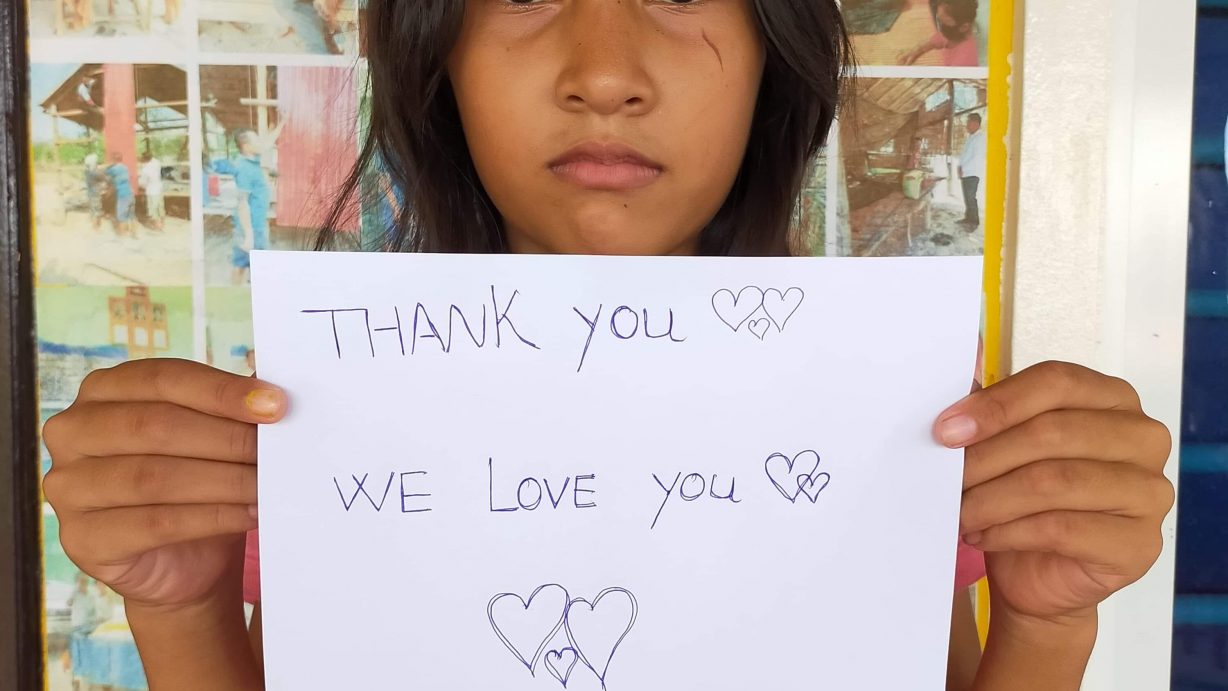 THANK YOU
WE LOVE YOU